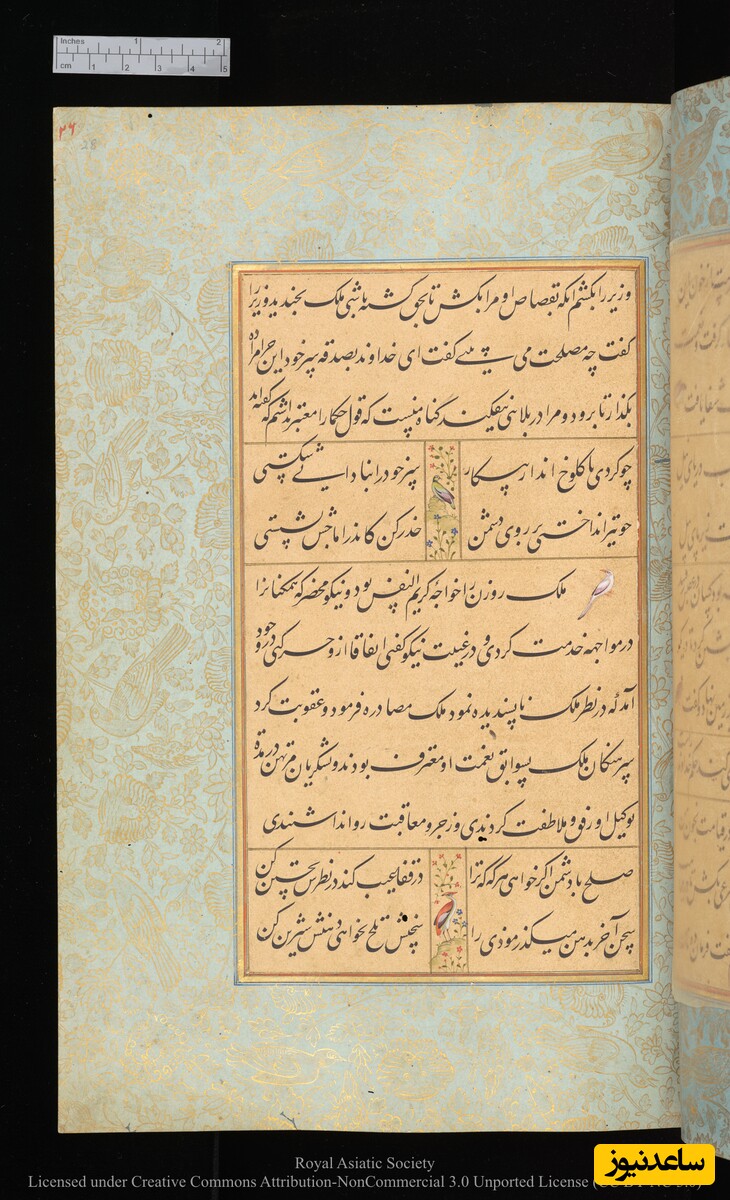 Inches 1 2
cm 1 2 3 4 5
۲۶
28
وزیر را بکشم آنکه بقصاص او مرا بکش تا بحق کشته باشی ملک بخندید وزیر را
گفت چه مصلحت می بینی گفت ای خداوند بصدقه پسر خود این حرامزاده
بگذار تا برود و مرا در بلائی نیفکند گناه منیست که قول حکما را معتبر نداشتم که گفته اند
چو کردی با کلوخ انداز پیکار سر خود را بنادانی شکستی
چو تیر انداختی بر روی دشمن حذر کن کاندر آماجش نشستی
ملک روزن را خواجۀ کریم النفس بود و نیکو محضر که همکنانرا
در مواجهه خدمت کردی و در غیبت نیکو گفتی اتفاقا ازو حرکتی در وجود
آمد که در نظر ملک ناپسندیده نمود ملک مصادره فرمود و عقوبت کرد
سرهنگان ملک بسوابق نعمت او معترف بودند و بشکر آن مرتهن در مدة
توکیل او رفق و ملاطفت کردندی و زجر و معاقبت روا نداشتندی
صلح با دشمن اگر خواهی هر گه که ترا در قفا عیب کند در نظرش تحسین کن
سخن آخر بدهن میگذرد موذی را سخنش تلخ نخواهی دهنش شیرین کن
Royal Asiatic Society
Licensed under Creative Commons Attribution-NonCommercial 3.0 Unported License
ساعدنیوز